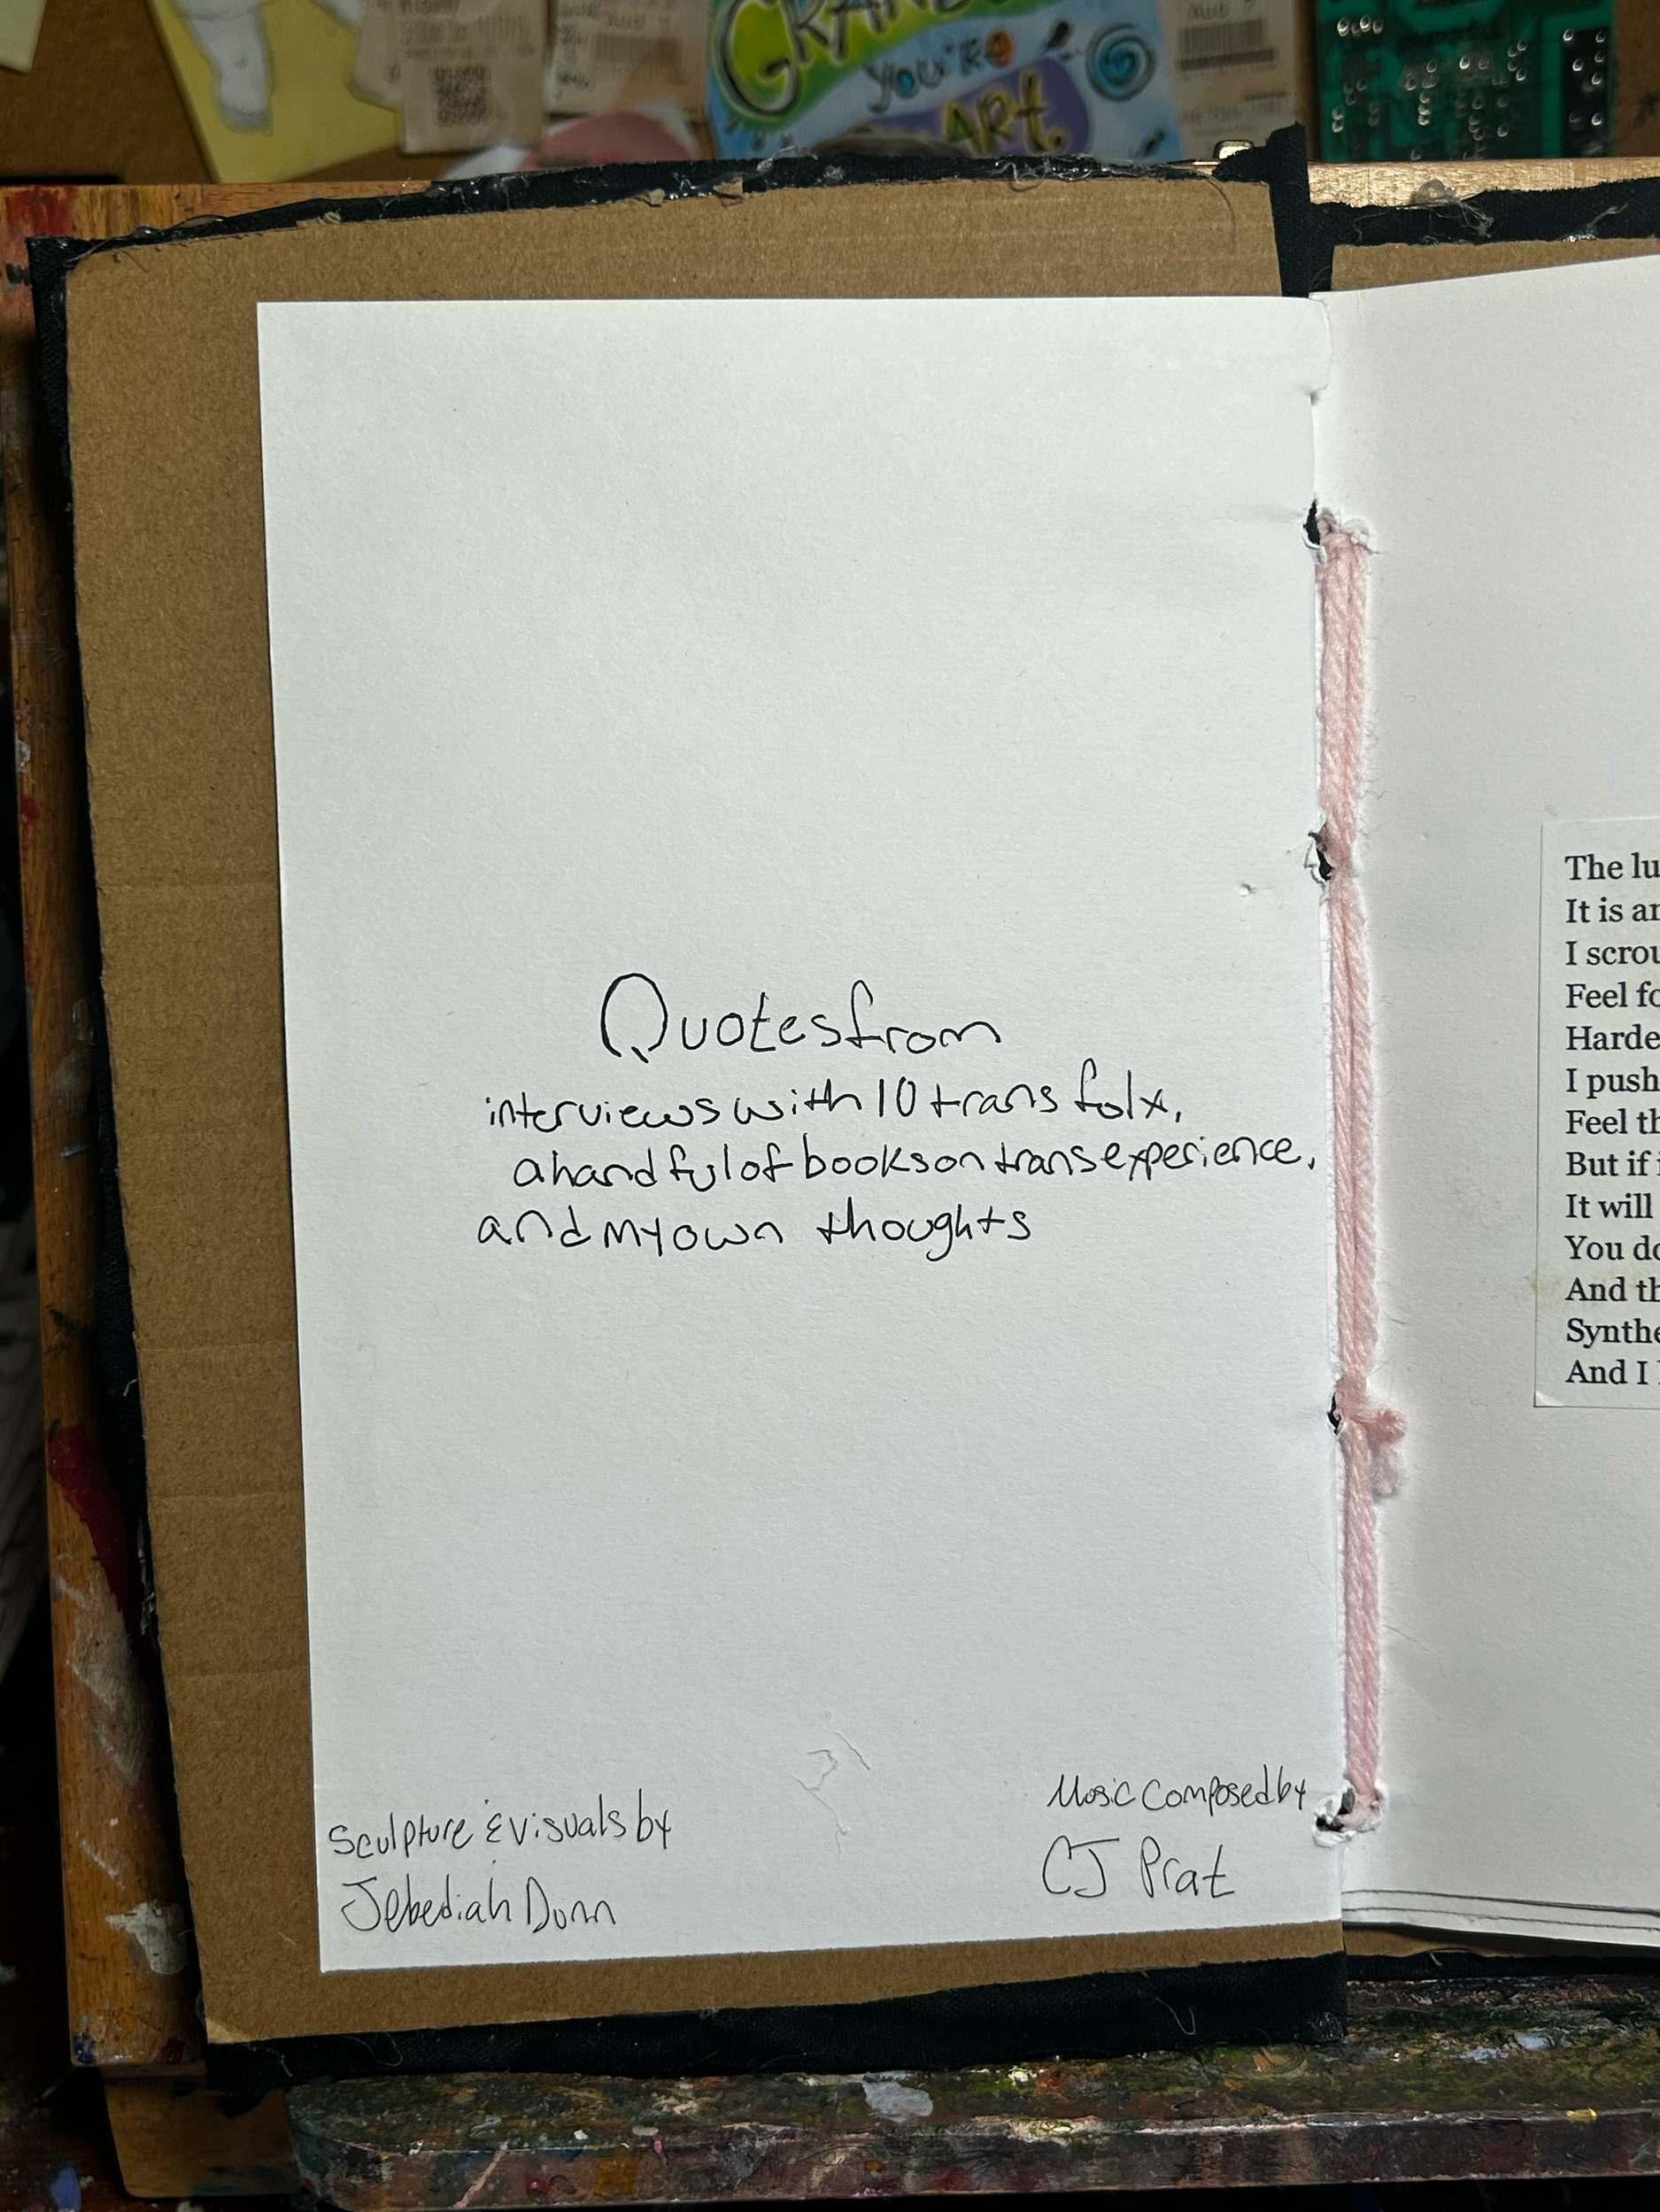 you're
ART.
Quotes from
interviews with 10 trans folx,
a handful of books on trans experience,
and my own thoughts
Sculpture & visuals by
Jebediah Dunn
Music Composed by
CJ Prat
The lu
It is an
I scrou
Feel fo
Harde
I push
Feel th
But if i
It will
You do
And th
Synthe
And I